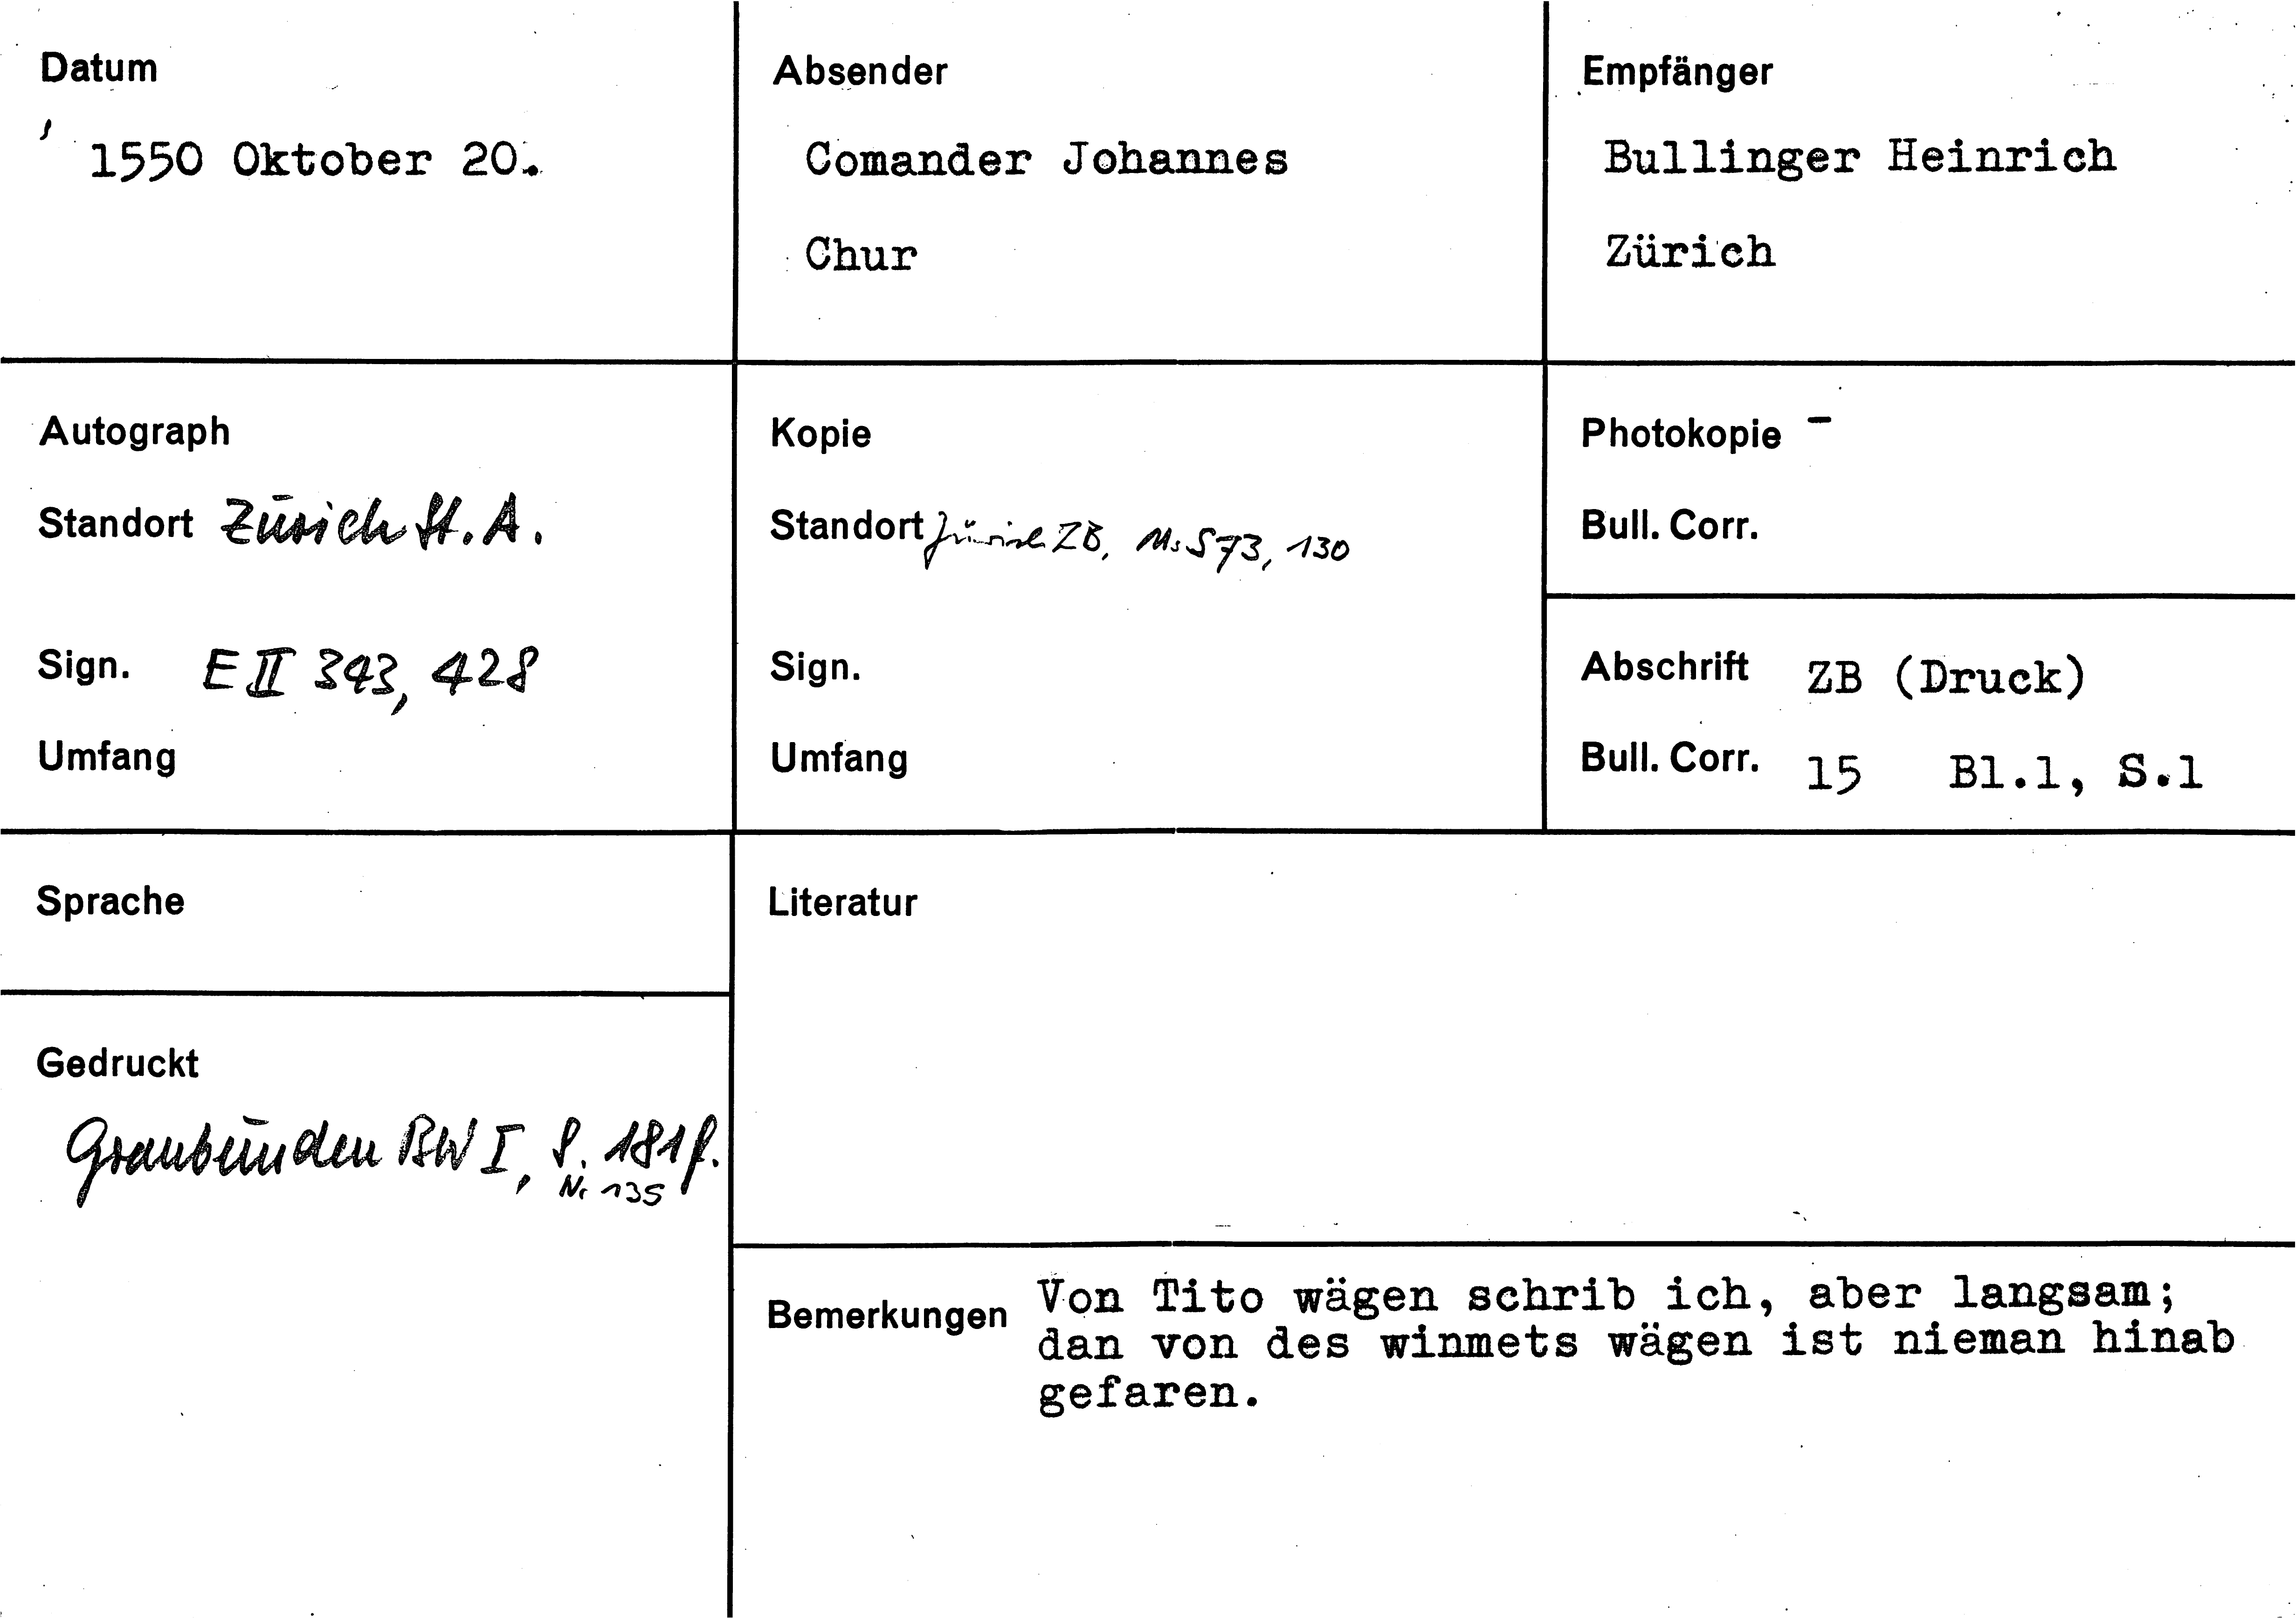 Datum
1550 Oktober 20.
Absender
Comander Johannes
Chur
Empfänger
Bullinger Heinrich
Zürich
Autograph
Standort Zürich St. A.
Sign. E II 343, 428
Umfang
Kopie
Standort Zürich ZB, Ms S 73, 130
Sign.
Umfang
Photokopie -
Bull. Corr.
Abschrift ZB (Druck)
Bull. Corr. 15 Bl.1, S.1
Sprache
Gedruckt
Graubünden BW I, S. 181f.
Nr 135
Literatur
Bemerkungen Von Tito wägen schrib ich, aber langsam;
dan von des winmets wägen ist nieman hinab
gefaren.